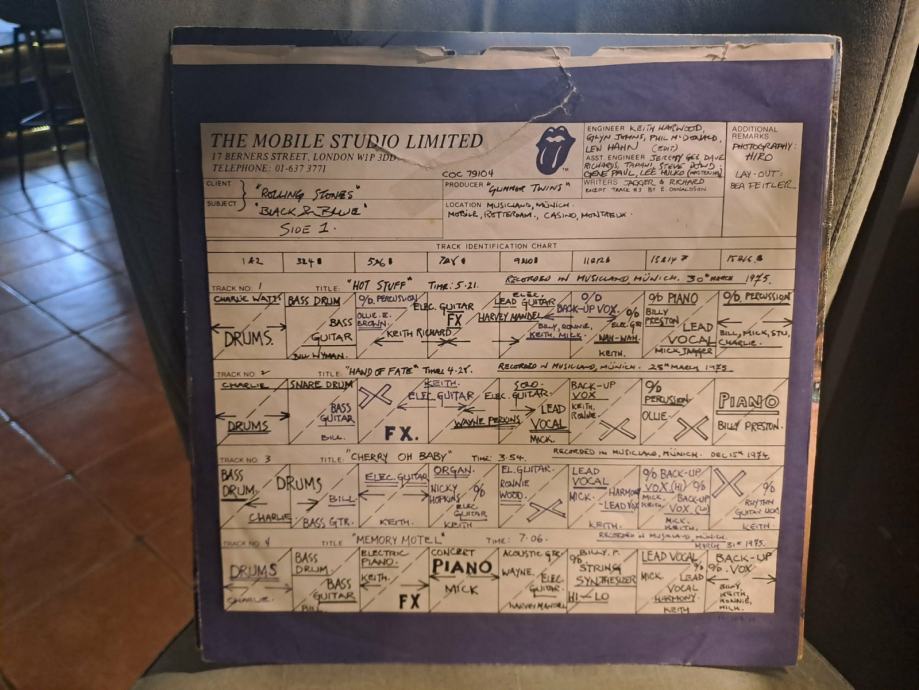 THE MOBILE STUDIO LIMITED
17 BERNERS STREET, LONDON W1P 3DD
TELEPHONE: 01-637 3771
COC 79104
ENGINEER KEITH HARWOOD,
GLYN JOHNS, PHIL McDONALD,
LEW HAHN (EDIT)
ASST. ENGINEER JEREMY GEE, DAVE
RICHARDS, TAPANI, STEVE DOWD,
GENE PAUL, LEE HULKO (MASTERING)
WRITERS JAGGER & RICHARD
EXCEPT TRACK #3 BY E. DONALDSON
ADDITIONAL
REMARKS
PHOTOGRAPHY:
HIRO
LAY-OUT:
BEA FEITLER.
CLIENT
SUBJECT
"ROLLING STONES"
"BLACK & BLUE"
SIDE 1.
PRODUCER "GLIMMER TWINS"
LOCATION MUSICLAND, MÜNICH.
MOBILE, ROTTERDAM., CASINO, MONTREUX.
TRACK IDENTIFICATION CHART
1&2 3&4 5&6 7&8 9&10 11&12 13&14 15&16
TRACK NO. 1 TITLE: "HOT STUFF" TIME: 5-21. RECORDED IN MUSICLAND MÜNICH. 30th MARCH 1975.
CHARLIE WATTS
DRUMS.
BASS DRUM
BASS
GUITAR
BILL WYMAN.
O/D. PERCUSSION
OLLIE. E.
BROWN.
KEITH RICHARD
ELEC. GUITAR
FX
ELEC.
LEAD GUITAR
HARVEY MANDEL
BILLY, RONNIE,
KEITH, MICK.
O/D
BACK-UP VOX.
O/D
ELEC. GTR
WAH-WAH.
KEITH.
O/D PIANO
BILLY
PRESTON
LEAD
VOCAL
MICK JAGGER
O/D. PERCUSSION
BILL, MICK, STU,
CHARLIE.
TRACK NO. 2 TITLE: "HAND OF FATE" TIME: 4-28. RECORDED IN MUSICLAND, MÜNICH. 25th MARCH 1975.
CHARLIE
DRUMS
SNARE DRUM
BASS
GUITAR
BILL.
FX.
KEITH.
ELEC. GUITAR
WAYNE PERKINS
SOLO.
ELEC. GUITAR.
LEAD
VOCAL
MICK.
BACK-UP
VOX
KEITH.
RONNIE.
O/D
PERCUSSION
OLLIE
PIANO
BILLY PRESTON.
TRACK NO. 3 TITLE: "CHERRY OH BABY" TIME: 3-54. RECORDED IN MUSICLAND, MÜNICH. DEC 15th 1974.
BASS
DRUM
CHARLIE
DRUMS
BILL
BASS GTR.
ELEC. GUITAR
KEITH.
ORGAN.
NICKY
HOPKINS
O/D
ELEC
GUITAR
KEITH
EL. GUITAR.
RONNIE
WOOD.
LEAD
VOCAL
MICK.
HARMONY
LEAD VOX
KEITH.
O/D BACK-UP
VOX (HI)
MICK.
KEITH.
O/D
BACK-UP
VOX (LO)
MICK.
KEITH.
O/D
RHYTHM
GUITAR
KEITH.
TRACK NO. 4 TITLE "MEMORY MOTEL" TIME: 7-06. RECORDED IN MUSICLAND, MÜNICH.
MARCH 31st 1975.
DRUMS
CHARLIE.
BASS
DRUM.
BASS
GUITAR
BILL
ELECTRIC
PIANO.
KEITH.
FX
CONCERT
PIANO
MICK
ACOUSTIC GTR.
WAYNE.
ELEC
GUITAR.
HARVEY MANDEL
BILLY. P.
O/D
STRING
SYNTHESIZER
HI-LO
LEAD VOCAL
MICK.
O/D
LEAD
VOCAL
HARMONY.
KEITH
BACK-UP
O/D. VOX
BILLY,
KEITH,
RONNIE,
MICK.